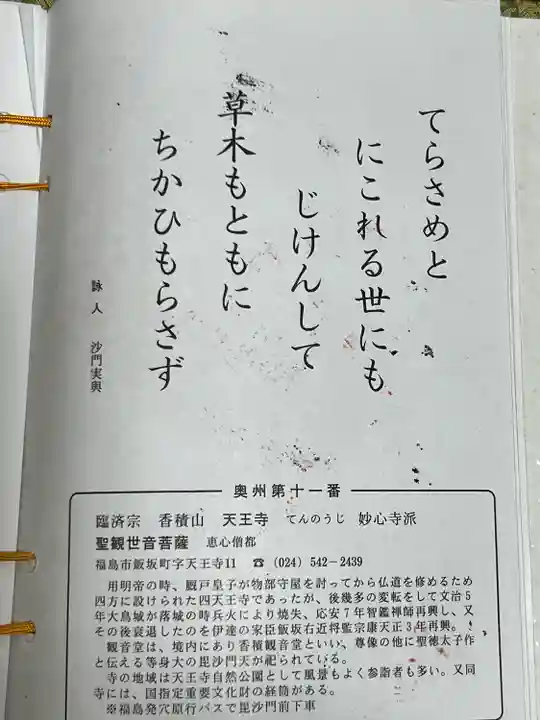 てらさめと
にこれる世にも
じけんして
草木もともに
ちかひもらさず
詠人　沙門実興
奥州第十一番
臨済宗　香積山　天王寺　てんのうじ　妙心寺派
聖観世音菩薩　恵心僧都
福島市飯坂町字天王寺11　☎(024)542-2439
用明帝の時、厩戸皇子が物部守屋を討ってから仏道を修めるため
四方に設けられた四天王寺であったが、後幾多の変転をして文治5
年大鳥城が落城の時兵火により焼失、応安7年智鑑禅師再興し、又
その後衰退したのを伊達の家臣飯坂右近将監宗康天正3年再興。
観音堂は、境内にあり香積観音堂といい、尊像の他に聖徳太子作
と伝える等身大の毘沙門天が祀られている。
寺の地域は天王寺自然公園として風景もよく参詣者も多い。又同
寺には、国指定重要文化財の経筒がある。
※福島発穴原行バスで毘沙門前下車